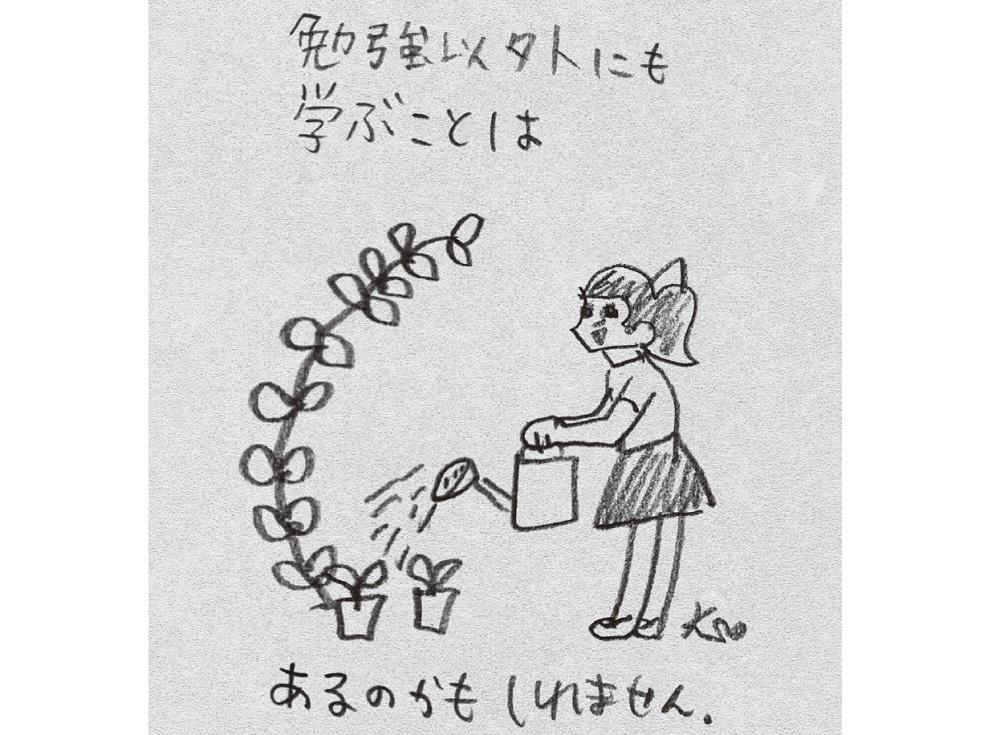 勉強以外にも
学ぶことは
あるのかもしれません.